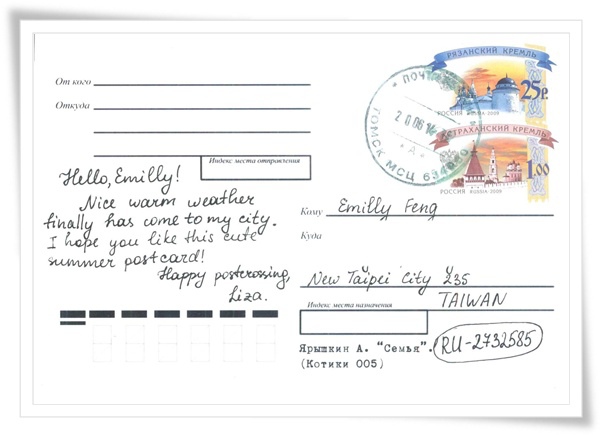 От кого
Откуда
Индекс места отправления
РЯЗАНСКИЙ КРЕМЛЬ
25р.
РОССИЯ RUSSIA · 2009
АСТРАХАНСКИЙ КРЕМЛЬ
РОССИЯ · RUSSIA · 2009
1.00
20 06 14
"А"
ТОМСК МСЦ 634960
Hello, Emilly!
Nice warm weather
finally has come to my city.
I hope you like this cute
summer postcard!
Happy postcrossing,
Liza.
Кому Emilly Feng
Куда
New Taipei City 235
TAIWAN
Индекс места назначения
Ярышкин А. "Семья".
(Котики 005)
RU-2732585